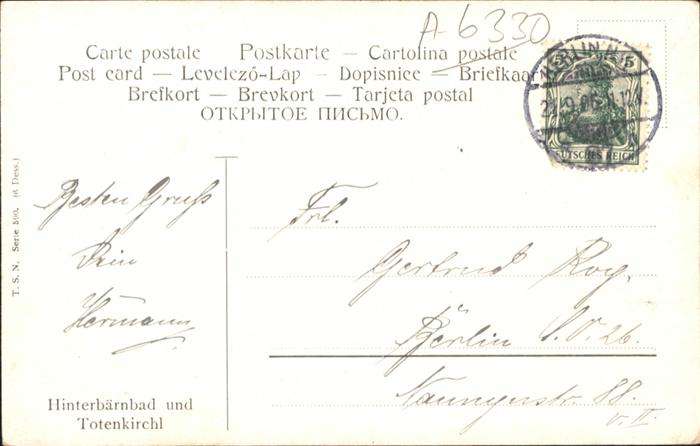 A-6330
Carte postale Postkarte — Cartolina postale
Post card — Levelező-Lap — Dopisnice — Briefkaart
Brefkort — Brevkort — Tarjeta postal
ОТКРЫТОЕ ПИСЬМО.
5 5
DEUTSCHES REICH
T. S. N. Serie 590. (6 Dess.)
Besten Gruß
Dein
Hermann
Frl.
Gertrud Roy.
Berlin S.O. 26.
Naunynstr. 88.
v. II.
Hinterbärnbad und
Totenkirchl